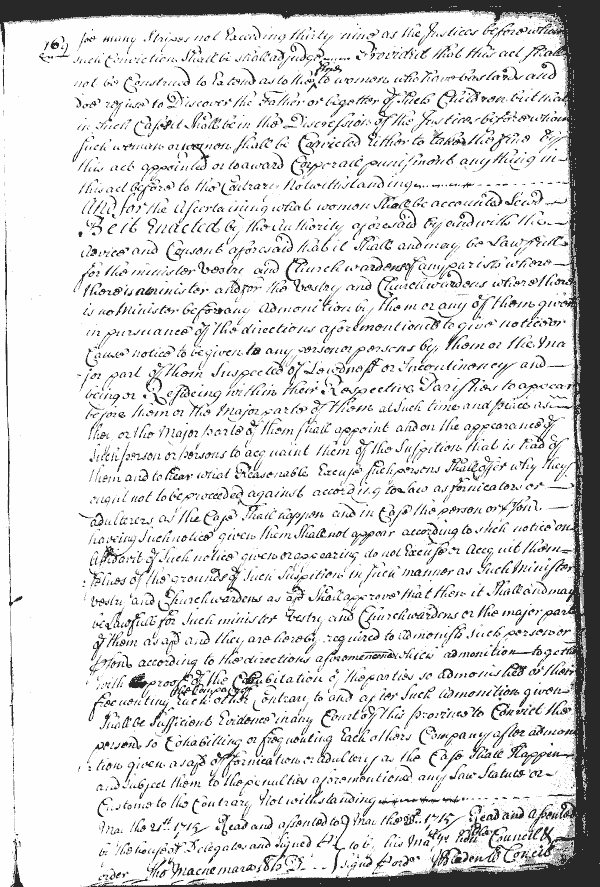 169 for many Stripes not Exceeding thirty nine as the Justices before whom
such Conviction Shall be shall adjudge Provided that this act shall
not be Construed to Extend as to the fine to women who have bastards and
doe refuse to Discover the Father or begetter of such Children but that
in such Case it Shall be in the Discression of the Justices before whom
such woman or women shall be Convicted either to take the fine by
this act appointed or to award Corporall punishment any thing in
this act before to the Contrary notwithstanding
And for the Ascertaining what women Shall be accounted Lewd
Be it Enacted by the Authority aforesaid by and with the
Advice and Consent aforesaid that it Shall and may be Lawfull
for the minister Vestry and Churchwardens of any parish where
there is a minister and for the Vestry and Churchwardens where there
is no Minister before any Admonition by them or any of them given
in pursuance of the directions aforementioned to give notice or
Cause notice to be given to any person or persons by them or the Ma
jor part of them Suspected of Lewdness or Incontinency and
being or Resideing within their Respective Parishes to appear
before them or the Major parte of them at such time and place as
they or the Major parte of them shall appoint and on the appearance of
such person or persons to acquaint them of the Suspition that is had of
them and to hear what Reasonable Excuse such persons Shall offer why they
ought not to be proceeded against according to Law as fornicators or
adulterers as the Case Shall happen and in Case the person or
having such notice given them Shall not appear according to such notice on
Affidavit of such notice given or appearing do not Excuse or Acquit them
selves of the grounds of such Suspition in such manner as such Minister
Vestry and Churchwardens as afd Shall approve that then it Shall and may
be Lawfull for such minister Vestry and Churchwardens or the major part
of them as afd and they are hereby required to admonish such person or
according to the directions aforemenconed which admonition together
with proof of the Cohabitation of the parties so admonished or their
frequenting the Company of Each other Contrary to and after such admonition given
Shall be Sufficient Evidence in any Court of this province to Convict the
persons so Cohabitting or frequenting Each others Company after admoni
tion given as afd of fornication or adultery as the Case Shall Happen
and subject them to the penalties aforementioned any Law Statute or
Custome to the Contrary Notwithstanding
May the 21st 1715 Read and assented to May the 1715 Read and assented
by the house of Delegates and signed to by his Matys Honble Council &
order Tho Macnemara signed order